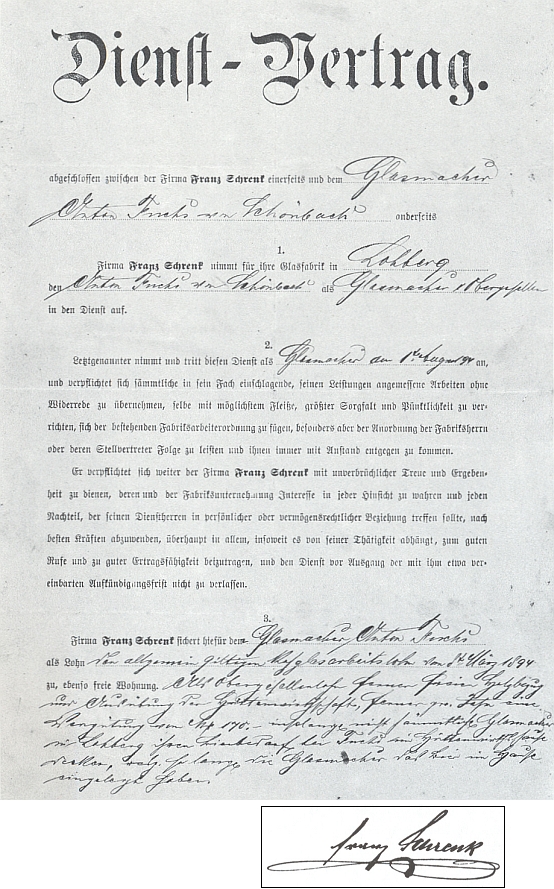 Dienst-Vertrag.
abgeschlossen zwischen der Firma Franz Schrenk einerseits und dem Glasmacher
Anton Fuchs von Schönbach anderseits
1.
Firma Franz Schrenk nimmt für ihre Glasfabrik in Lohberg
den Anton Fuchs von Schönbach als Glasmacher
in den Dienst auf.
2.
Letztgenannter nimmt und tritt diesen Dienst als Glasmacher am 1. August 94 an,
und verpflichtet sich sämmtliche in sein Fach einschlagende, seinen Leistungen angemessene Arbeiten ohne
Widerrede zu übernehmen, selbe mit möglichstem Fleiße, größter Sorgfalt und Pünktlichkeit zu ver-
richten, sich der bestehenden Fabriksarbeiterordnung zu fügen, besonders aber der Anordnung der Fabriksherrn
oder deren Stellvertreter Folge zu leisten und ihnen immer mit Anstand entgegen zu kommen.
Er verpflichtet sich weiter der Firma Franz Schrenk mit unverbrüchlicher Treue und Ergeben-
heit zu dienen, deren und der Fabriksunternehmung Interesse in jeder Hinsicht zu wahren und jeden
Nachteil, der seinen Dienstherren in persönlicher oder vermögensrechtlicher Beziehung treffen sollte, nach
besten Kräften abzuwenden, überhaupt in allem, insoweit es von seiner Thätigkeit abhängt, zum guten
Rufe und zu guter Ertragsfähigkeit beizutragen, und den Dienst vor Ausgang der mit ihm etwa ver-
einbarten Aufkündigungsfrist nicht zu verlassen.
3.
Firma Franz Schrenk sichert hiefür dem Glasmacher Anton Fuchs
als Lohn den allgemein giltigen vom März 1894
zu, ebenso freie Wohnung. Als ferner freie
und der ferner pro Jahr eine
von nicht sämmtliche Glasmacher
in Lohberg ihren bei Fuchs im
so lang die Glasmacher das Bier im Hause
eingelegt haben.
Franz Schrenk